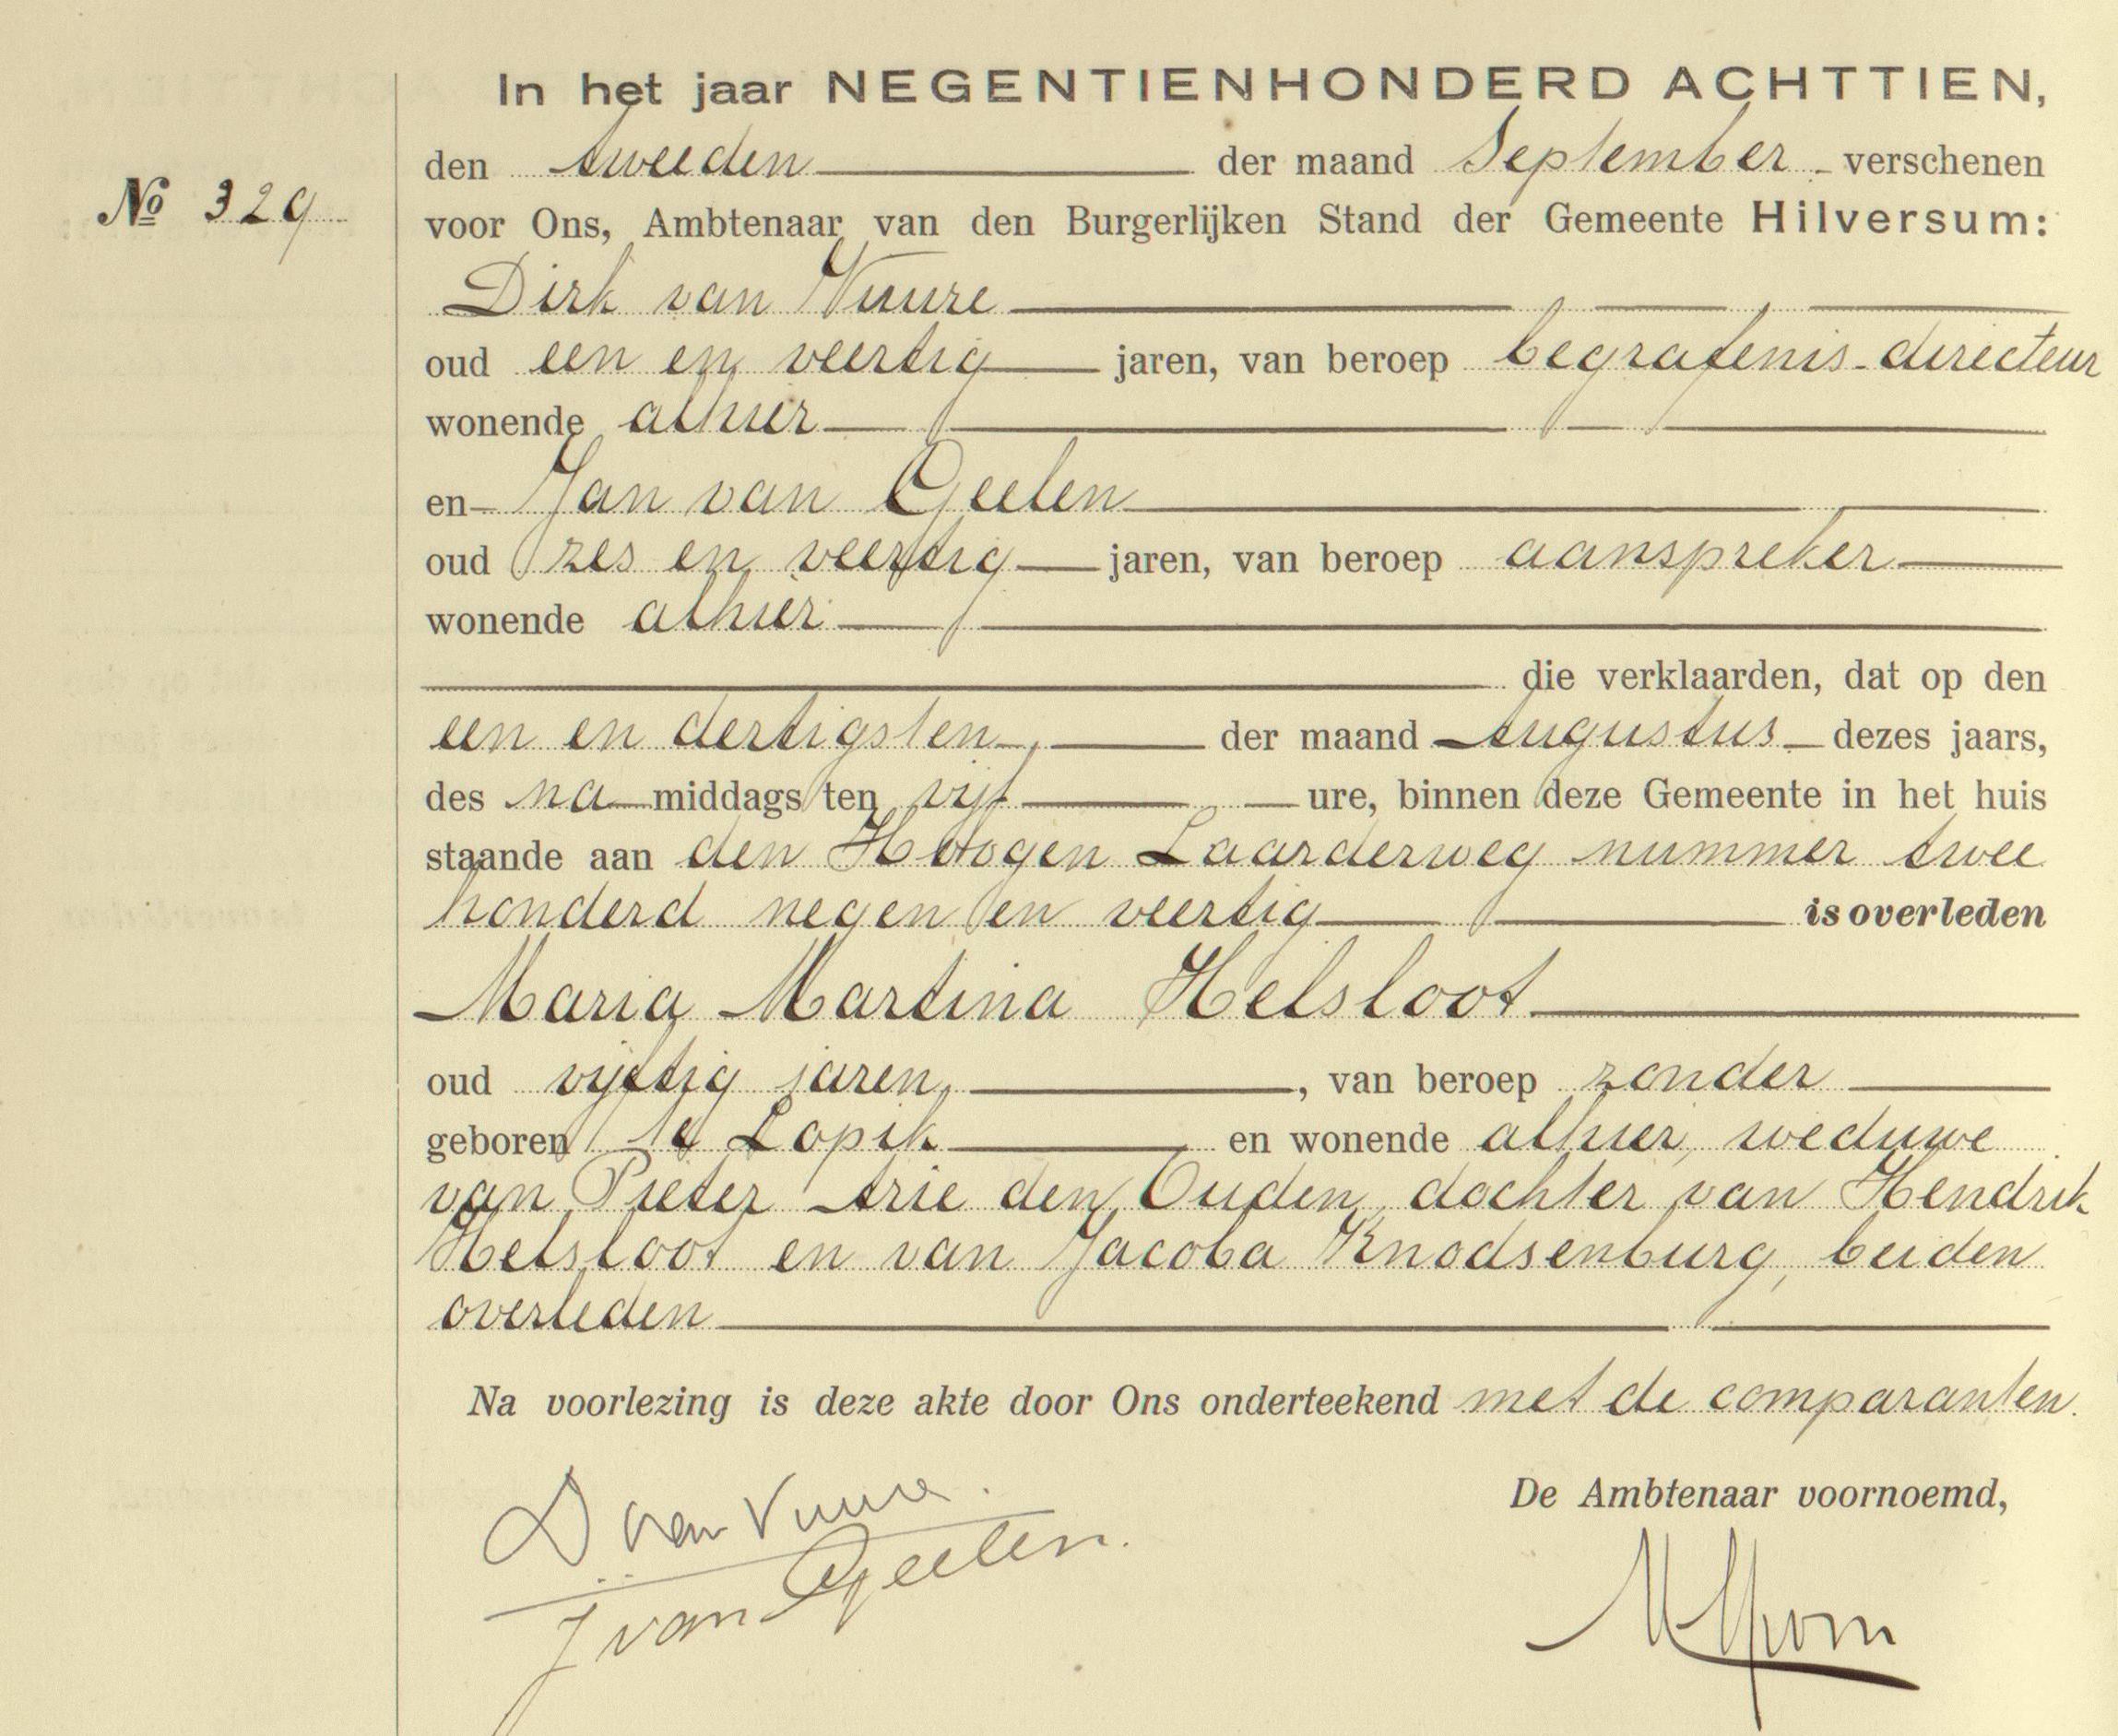 In het jaar NEGENTIENHONDERD ACHTTIEN,
den tweeden der maand September verschenen
No 329
voor Ons, Ambtenaar van den Burgerlijken Stand der Gemeente Hilversum:
Dirk van Vuure
oud een en veertig jaren, van beroep begrafenis-directeur
wonende alhier
en Jan van Geelen
oud zes en veertig jaren, van beroep aanspreker
wonende alhier
die verklaarden, dat op den
een en dertigsten, der maand Augustus dezes jaars,
des na middags ten vijf ure, binnen deze Gemeente in het huis
staande aan den Hoogen Laarderweg nummer twee
honderd negen en veertig is overleden
Maria Martina Helsloot
oud vijftig jaren, , van beroep zonder
geboren te Lopik en wonende alhier, weduwe
van Pieter Arie den Ouden, dochter van Hendrik
Helsloot en van Jacoba Knodsenburg, beiden
overleden
Na voorlezing is deze akte door Ons onderteekend met de comparanten.
De Ambtenaar voornoemd,
D van Vuure.
J van Geelen.